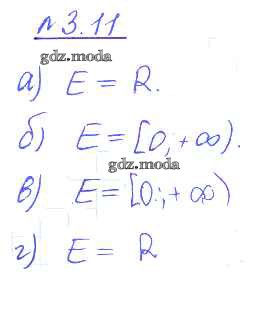 №3.11
gdz.moda
а) E = R.
б) E = [0; +∞).
gdz.moda
в) E = [0; +∞)
г) E = R